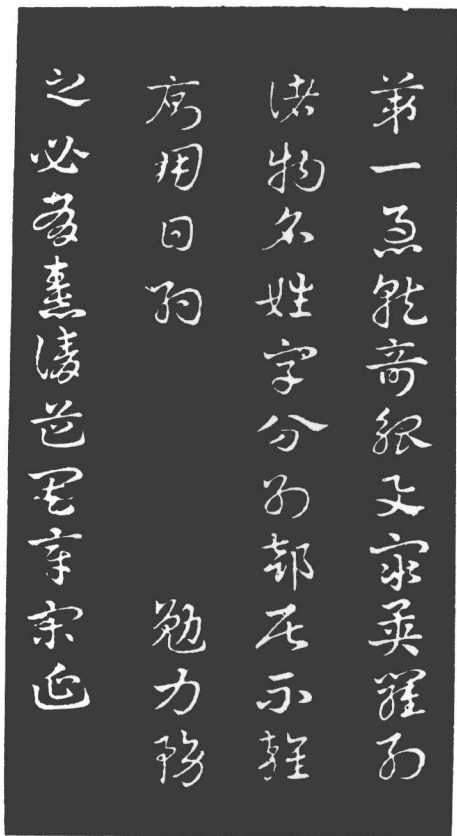 第一急就奇觚與衆異羅列
諸物名姓字分別部居不雜
廁用日約 勉力務
之必有憙請道其章宋延